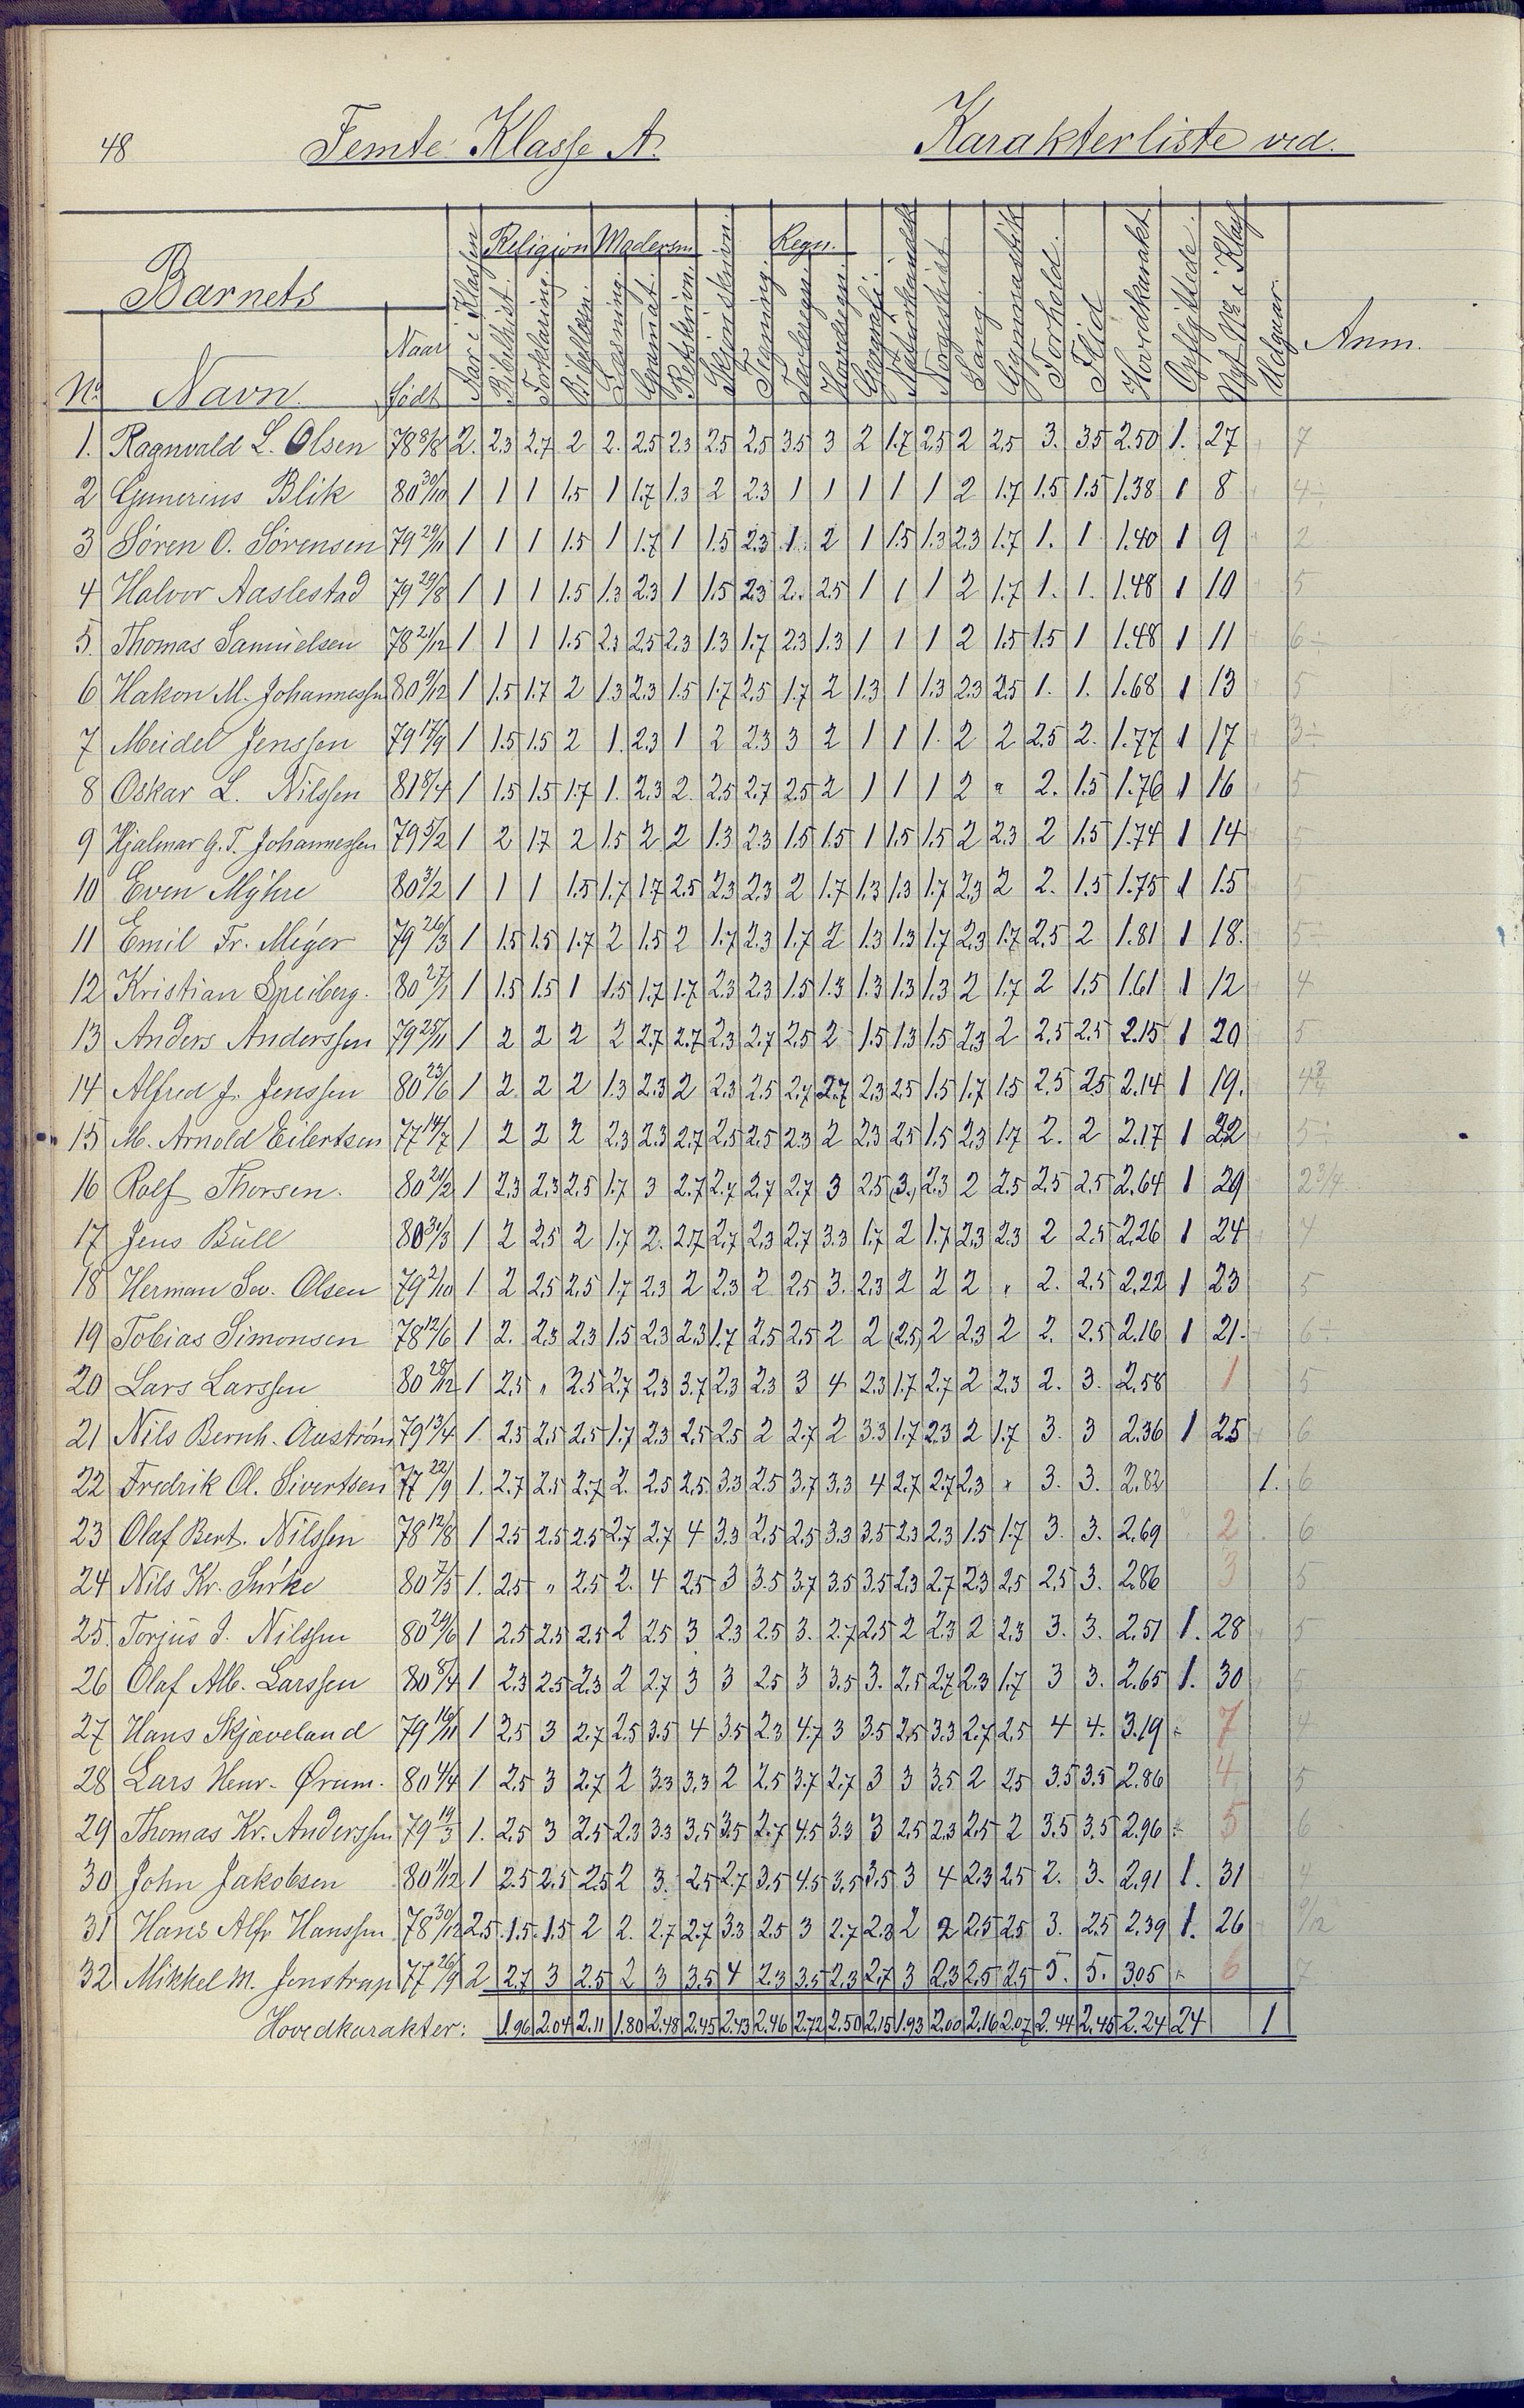 48 Femte Klasse A. Karakterliste ved.
Religion Modersm. Regn.
Barnets
No. Navn. Naar født Aar i Klassen Bibelhist. Forklaring Bibellæsn. Læsning. Gramat. Retskrivn. Skjønskrivn. Tegning. Tavleregn. Hovdregn. Geografi. Naturkundsk. Norgeshist. Sang. Gymnastik Forhold. Flid Hovdkarakt. Opflyttede. Nyt No. i Klas. Udgaar Anm.
1. Ragnvald L. Olsen 78 8/8 2. 2.3 2.7 2 2. 2.5 2.3 2.5 2.5 3.5 3 2 1.7 2.5 2 2.5 3. 3.5 2.50 1. 27 7
2 Gunerius Blik 80 30/10 1 1 1 1.5 1 1.7 1.3 2 2.3 1 1 1 1 1 2 1.7 1.5 1.5 1.38 1 8 4÷
3 Søren O. Sørensen 79 29/11 1 1 1 1.5 1 1.7 1 1.5 2.3 1. 2 1 1.5 1.3 2.3 1.7 1. 1 1.40 1 9 2
4 Halvor Aaslestad 79 29/8 1 1 1 1.5 1.3 2.3 1 1.5 2.3 2. 2.5 1 1 1 2 1.7 1. 1. 1.48 1 10 5
5. Thomas Samuelsen 78 21/12 1 1 1 1.5 2.3 2.5 2.3 1.3 1.7 2.3 1.3 1 1 1 2 1.5 1.5 1 1.48 1 11 6÷
6 Hakon M. Johannessen 80 9/12 1 1.5 1.7 2 1.3 2.3 1.5 1.7 2.5 1.7 2 1.3 1 1.3 2.3 2.5 1. 1. 1.68 1 13 5
7 Meidel Jenssen 79 17/9 1 1.5 1.5 2 1. 2.3 1 2 2.3 3 2 1 1 1. 2 2 2.5 2. 1.77 1 17 3÷
8 Oskar L. Nilssen 81 8/4 1 1.5 1.5 1.7 1. 2.3 2. 2.5 2.7 2.5 2 1 1 1 2 " 2. 1.5 1.76 1 16 5
9 Hjalmar G. T. Johannessen 79 5/2 1 2 1.7 2 1.5 2 2 1.3 2.3 1.5 1.5 1 1.5 1.5 2 2.3 2 1.5 1.74 1 14 5
10 Even Myhre 80 3/2 1 1 1 1.5 1.7 1.7 2.5 2.3 2.3 2 1.7 1.3 1.3 1.7 2.3 2 2. 1.5 1.75 1 15 5
11 Emil Fr. Meyer 79 26/3 1 1.5 1.5 1.7 2 1.5 2 1.7 2.3 1.7 2 1.3 1.3 1.7 2.3 1.7 2.5 2 1.81 1 18. 5÷
12 Kristian Speiberg. 80 27/1 1 1.5 1.5 1 1.5 1.7 1.7 2.3 2.3 1.5 1.3 1.3 1.3 1.3 2 1.7 2 1.5 1.61 1 12 4
13 Anders Anderssen 79 25/11 1 2 2 2 2 2.7 2.7 2.3 2.7 2.5 2 1.5 1.3 1.5 2.3 2 2.5 2.5 2.15 1 20 5
14 Alfred J. Jenssen 80 23/6 1 2 2 2 1.3 2.3 2 2.3 2.5 2.7 2.7 2.3 2.5 1.5 1.7 1.5 2.5 2.5 2.14 1 19.
15 M. Arnold Eilertsen 77 14/7 1 2 2 2 2.3 2.3 2.7 2.5 2.5 2.3 2 2.3 2.5 1.5 2.3 1.7 2. 2 2.17 1 22 5÷
16 Rolf Thorsen. 80 21/2 1 2.3 2.3 2.5 1.7 3 2.7 2.7 2.7 2.7 3 2.5 (3.) 2.3 2 2.5 2.5 2.5 2.64 1 29 2 3/4
17 Jens Bull 80 31/3 1 2 2.5 2 1.7 2. 2.7 2.7 2.3 2.7 3.3 1.7 2 1.7 2.3 2.3 2 2.5 2.26 1 24 4
18 Herman Sev. Olsen 79 2/10 1. 2 2.5 2.5 1.7 2.3 2 2.3 2 2.5 3. 2.3 2 2 2 " 2. 2.5 2.22 1 23 5
19 Tobias Simonsen 78 12/6 1 2. 2.3 2.3 1.5 2.3 2.3 1.7 2.5 2.5 2 2 (2.5) 2 2.3 2 2. 2.5 2.16 1 21. 6÷
20 Lars Larssen 80 28/12 1 2.5 " 2.5 2.7 2.3 3.7 2.3 2.3 3 4 2.3 1.7 2.7 2 2.3 2. 3. 2.58 1 5
21 Nils Bernh. Austrøm 79 13/4 1. 2.5 2.5 2.5 1.7 2.3 2.5 2.5 2 2.7 2 3.3 1.7 2.3 2 1.7 3. 3 2.36 1 25 6
22 Fredrik Ol. Sivertsen 77 22/9 1. 2.7 2.5 2.7 2. 2.5 2.5 3.3 2.5 3.7 3.3 4 2.7 2.7 2.3 " 3. 3. 2.82 1. 6
23 Olaf Bert. Nilssen 78 12/8 1 2.5 2.5 2.5 2.7 2.7 4 3.3 2.5 2.5 3.3 3.5 2.3 2.3 1.5 1.7 3. 3. 2.69 2 6
24 Nils Kr. Surke 80 7/5 1. 2.5 " 2.5 2. 4 2.5 3 3.5 3.7 3.5 3.5 2.3 2.7 2.3 2.5 2.5 3. 2.86 3 5
25. Torjus J. Nilssen 80 24/6 1 2.5 2.5 2.5 2 2.5 3 2.3 2.5 3. 2.7 2.5 2 2.3 2 2.3 3. 3. 2.51 1. 28 5
26 Olaf Alb. Larssen 80 8/4 1 2.3 2.5 2.3 2 2.7 3 3 2.5 3 3.5 3. 2.5 2.7 2.3 1.7 3 3. 2.65 1. 30 5
27 Hans Skjæveland 79 16/11 1 2.5 3 2.7 2.5 3.5 4 3.5 2.3 4.7 3 3.5 2.5 3.3 2.7 2.5 4 4. 3.19 ÷ 7 4
28 Lars Henr. Ørum. 80 4/4 1 2.5 3 2.7 2 3.3 3.3 2 2.5 3.7 2.7 3 3 3.5 2 2.5 3.5 3.5 2.86 4 5
29 Thomas Kr. Anderssen 79 19/3 1. 2.5 3 2.5 2.3 3.3 3.5 3.5 2.7 4.5 3.3 3 2.5 2.3 2.5 2 3.5 3.5 2.96 ÷ 5 6
30 John Jakobsen 80 11/12 1 2.5 2.5 2.5 2 3. 2.5 2.7 3.5 4.5 3.5 3.5 3 4 2.3 2.5 2. 3. 2.91 1. 31 4
31 Hans Alfr. Hanssen 78 30/12 2.5 1.5 1.5 2 2. 2.7 2.7 3.3 2.5 3 2.7 2.3 2 2 2.5 2.5 3. 2.5 2.39 1. 26 9/12
32 Mikkel M. Jenstrap 77 26/9 2 2.7 3 2.5 2 3 3.5 4 2.3 3.5 2.3 2.7 3 2.3 2.5 2.5 5. 5. 3.05 ÷ 6 7
Hovedkarakter: 1.96 2.04 2.11 1.80 2.48 2.45 2.43 2.46 2.72 2.50 2.15 1.93 2.00 2.16 2.07 2.44 2.45 2.24 24 1